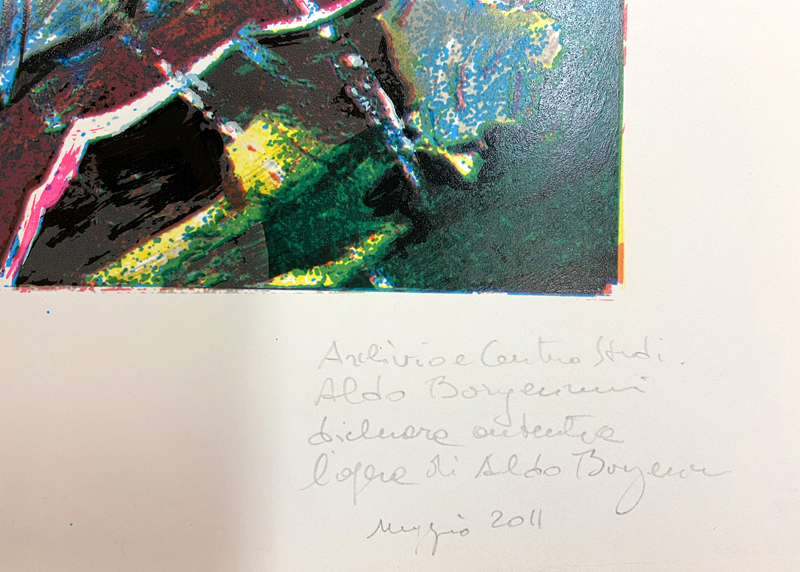 Archivio e Centro Studi
Aldo Borgonzoni
dichiara autentica
l'opera di Aldo Borgonzoni
Maggio 2011